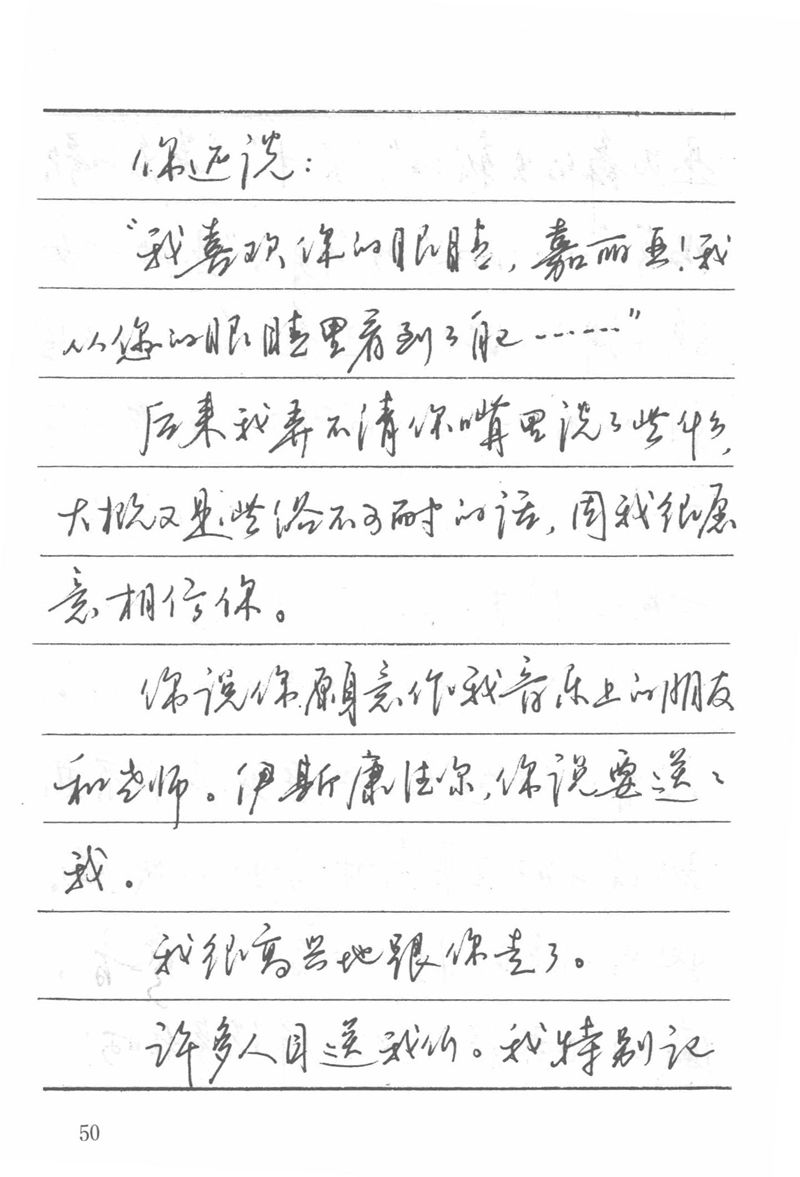 你还说：
“我喜欢你的眼睛，嘉丽亚！我
从您的眼睛里看到了自己……”
后来我弄不清你嘴里说了些什么，
大概又是些俗不可耐的话，因我很愿
意相信你。
你说你愿意作我音乐上的朋友
和老师。伊斯康佳尔，你说要送送
我。
我很高兴地跟你走了。
许多人目送我们。我特别记
50